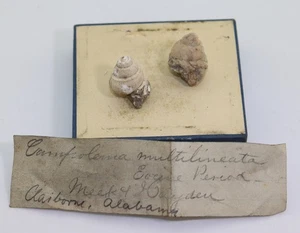 Campeloma multilineata
Eocene Period -
Meek & Hayden
Claiborne, Alabama